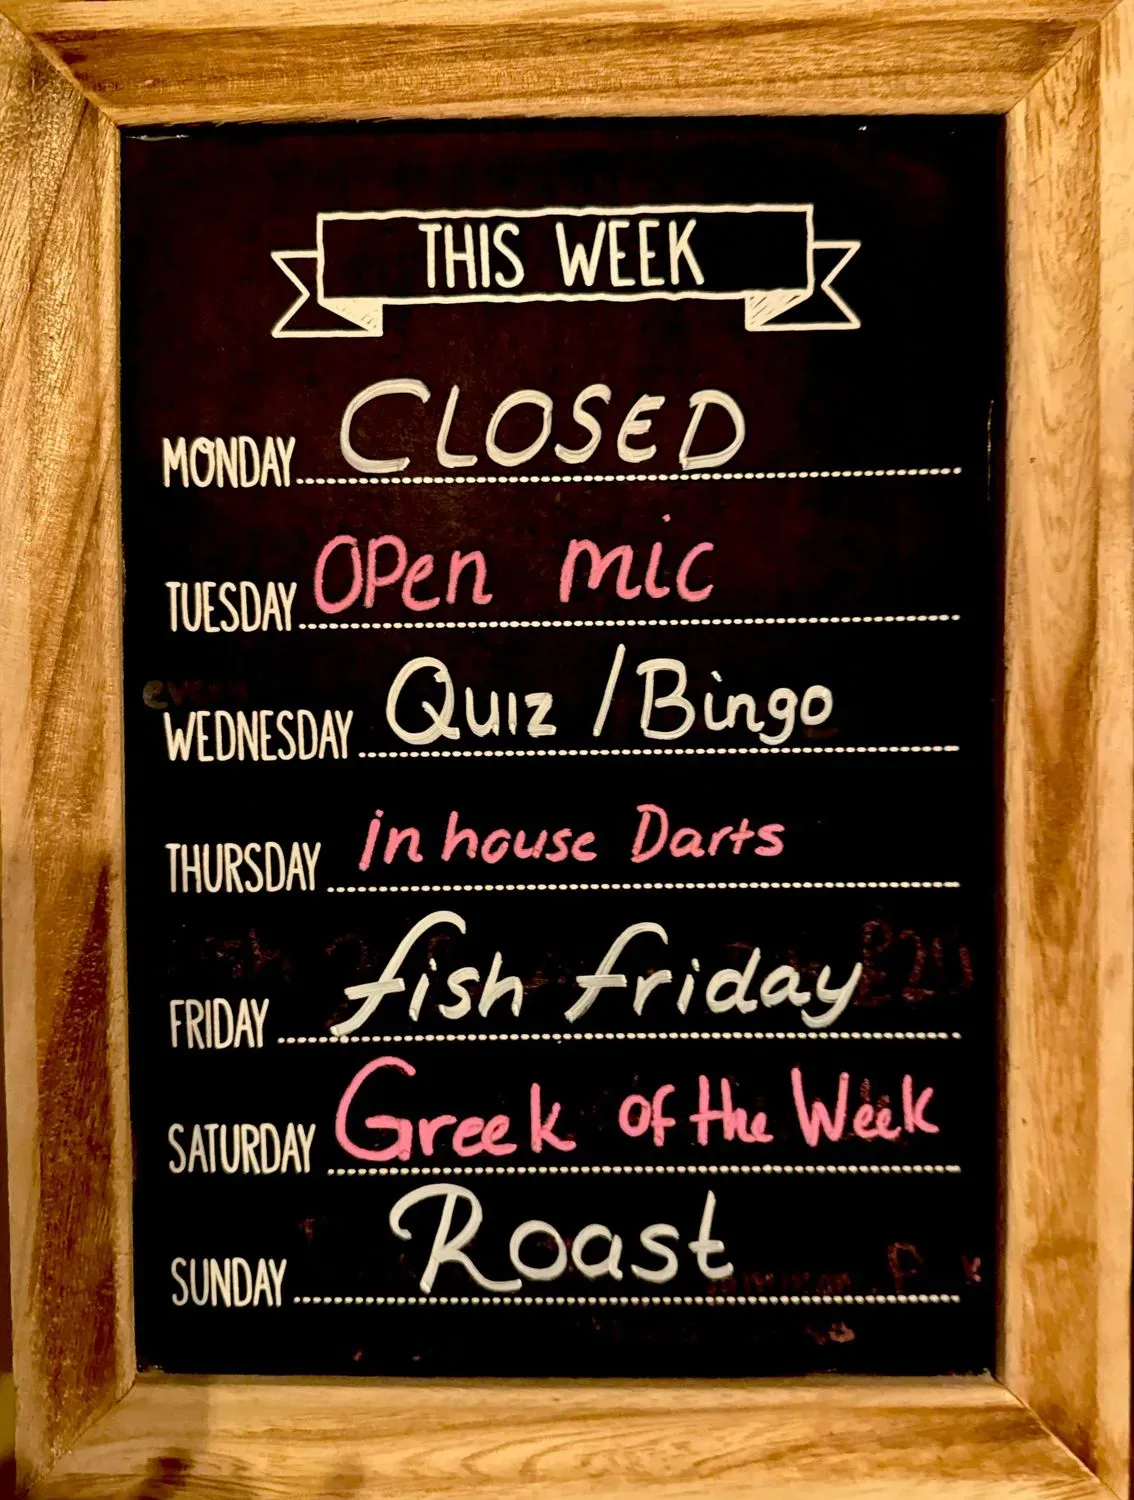 THIS WEEK
MONDAY CLOSED
TUESDAY OPen mic
WEDNESDAY Quiz / Bingo
THURSDAY in house Darts
FRIDAY fish friday
SATURDAY Greek of the Week
SUNDAY Roast